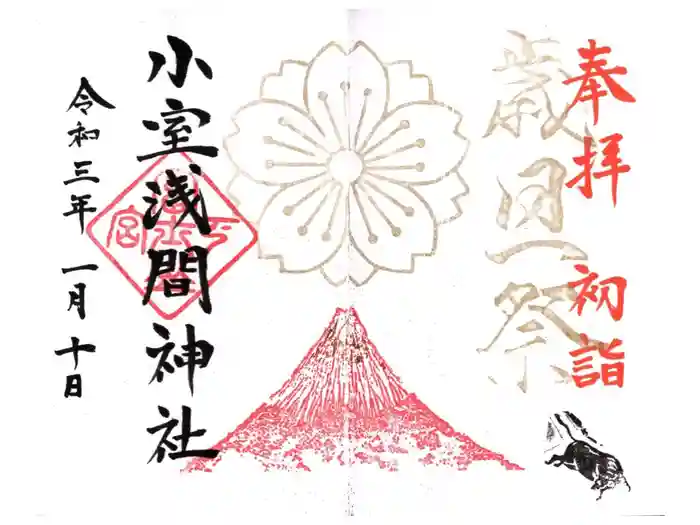 奉拝
初詣
歳旦祭
小室浅間神社
令和三年 一月 十日